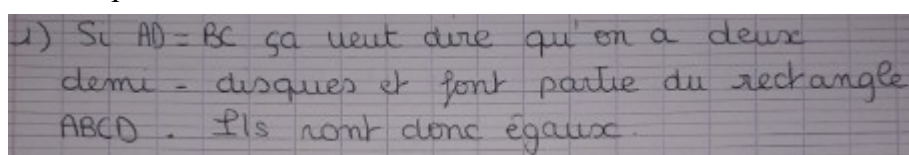 1) Si AD = BC ça veut dire qu'on a deux
demi - disques et font partie du rectangle
ABCD. Ils sont donc égaux.